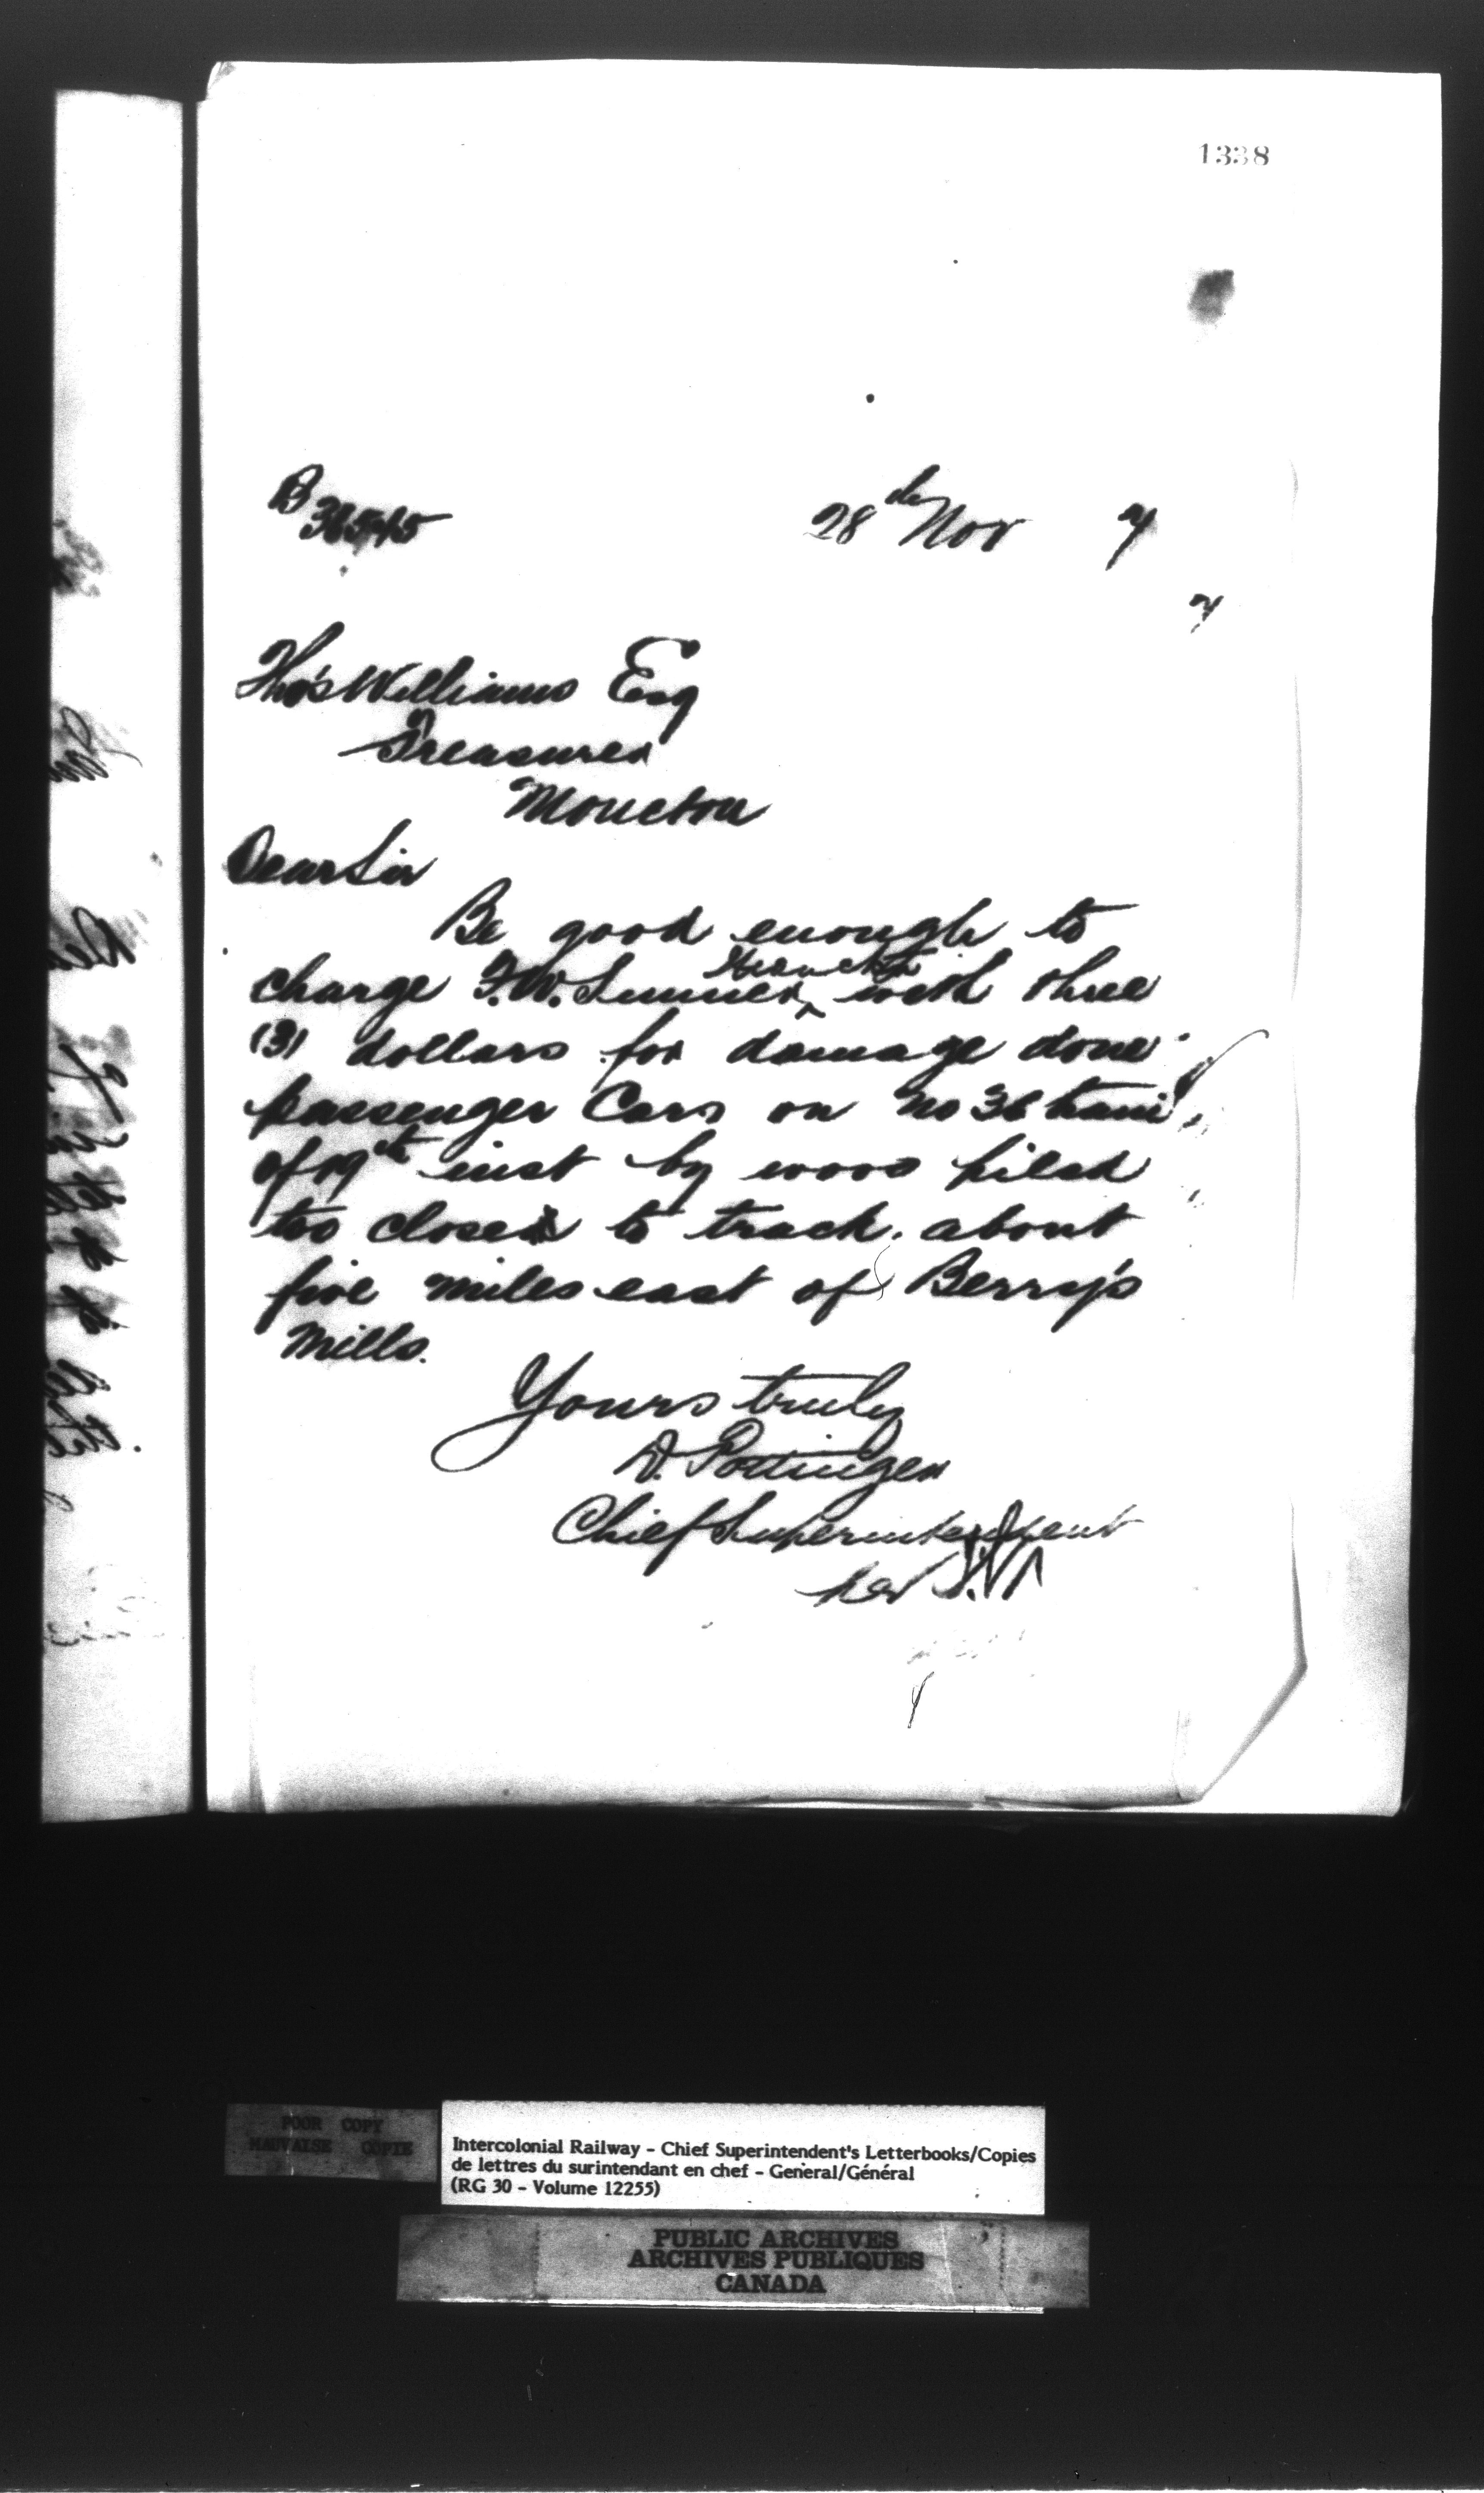 1338
B
36545
28th Nov 7
7
Thos Williams Esq
Treasurer
Moncton
Dear Sir
Be good enough to
charge F. W. Sumner, Moncton with three
(3) dollars for damage done
passenger Cars on No 36 train
of 19th inst by wood piled
too close to track. about
five miles east of Berry's
Mills.
Yours truly
D. Pottinger
Chief Superintendent
per
POOR COPY
MAUVAISE COPIE
Intercolonial Railway - Chief Superintendent's Letterbooks/Copies
de lettres du surintendant en chef - General/Général
(RG 30 - Volume 12255)
PUBLIC ARCHIVES
ARCHIVES PUBLIQUES
CANADA